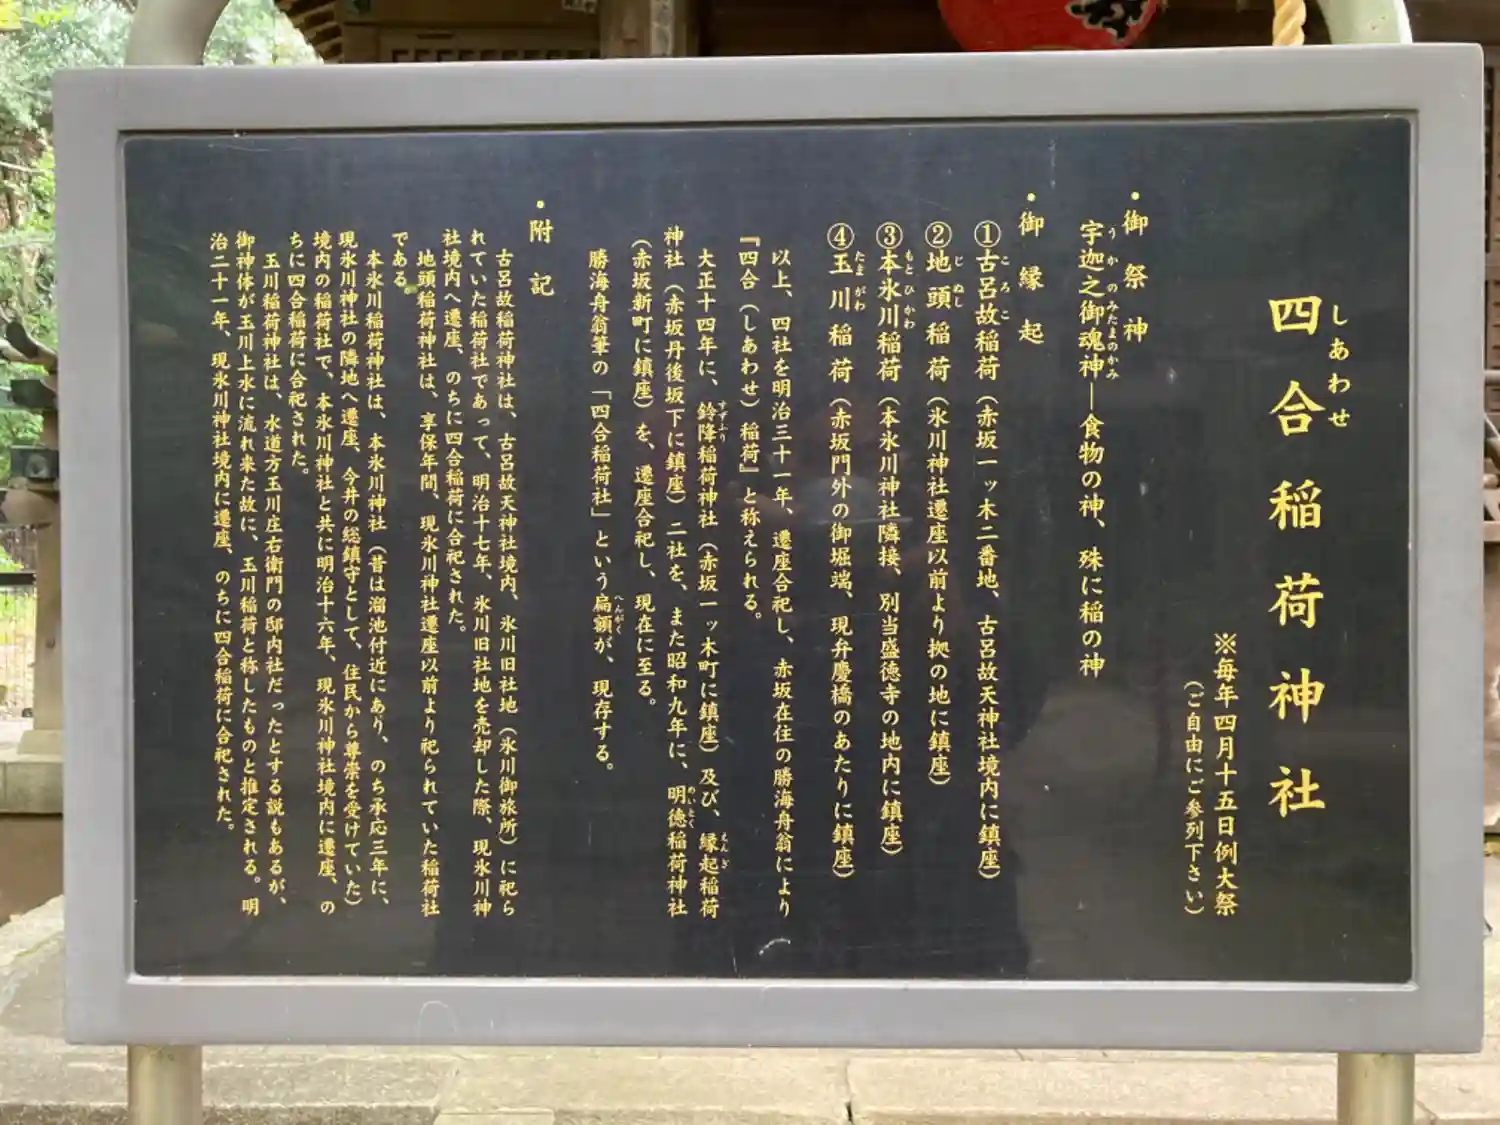 四合稲荷神社
しあわせ
※毎年四月十五日例大祭
（ご自由にご参列下さい）
・御祭神
宇迦之御魂神―食物の神、殊に稲の神
うかのみたまのかみ
・御縁起
①古呂故稲荷（赤坂一ッ木二番地、古呂故天神社境内に鎮座）
ころこ
②地頭稲荷（氷川神社遷座以前より拠の地に鎮座）
じぬし
③本氷川稲荷（本氷川神社隣接、別当盛徳寺の地内に鎮座）
もとひかわ
④玉川稲荷（赤坂門外の御堀端、現弁慶橋のあたりに鎮座）
たまがわ
以上、四社を明治三十一年、遷座合祀し、赤坂在住の勝海舟翁により
『四合（しあわせ）稲荷』と称えられる。
大正十四年に、鈴降稲荷神社（赤坂一ッ木町に鎮座）及び、縁起稲荷
すずふり
えんぎ
神社（赤坂丹後坂下に鎮座）二社を、また昭和九年に、明徳稲荷神社
めいとく
（赤坂新町に鎮座）を、遷座合祀し、現在に至る。
勝海舟翁筆の「四合稲荷社」という扁額が、現存する。
へんがく
・附記
古呂故稲荷神社は、古呂故天神社境内、氷川旧社地（氷川御旅所）に祀ら
れていた稲荷社であって、明治十七年、氷川旧社地を売却した際、現氷川神
社境内へ遷座、のちに四合稲荷に合祀された。
地頭稲荷神社は、享保年間、現氷川神社遷座以前より祀られていた稲荷社
である。
本氷川稲荷神社は、本氷川神社（昔は溜池付近にあり、のち承応三年に、
現氷川神社の隣地へ遷座、今井の総鎮守として、住民から尊崇を受けていた）
境内の稲荷社で、本氷川神社と共に明治十六年、現氷川神社境内に遷座、の
ちに四合稲荷に合祀された。
玉川稲荷神社は、水道方玉川庄右衛門の邸内社だったとする説もあるが、
御神体が玉川上水に流れ来た故に、玉川稲荷と称したものと推定される。明
治二十一年、現氷川神社境内に遷座、のちに四合稲荷に合祀された。